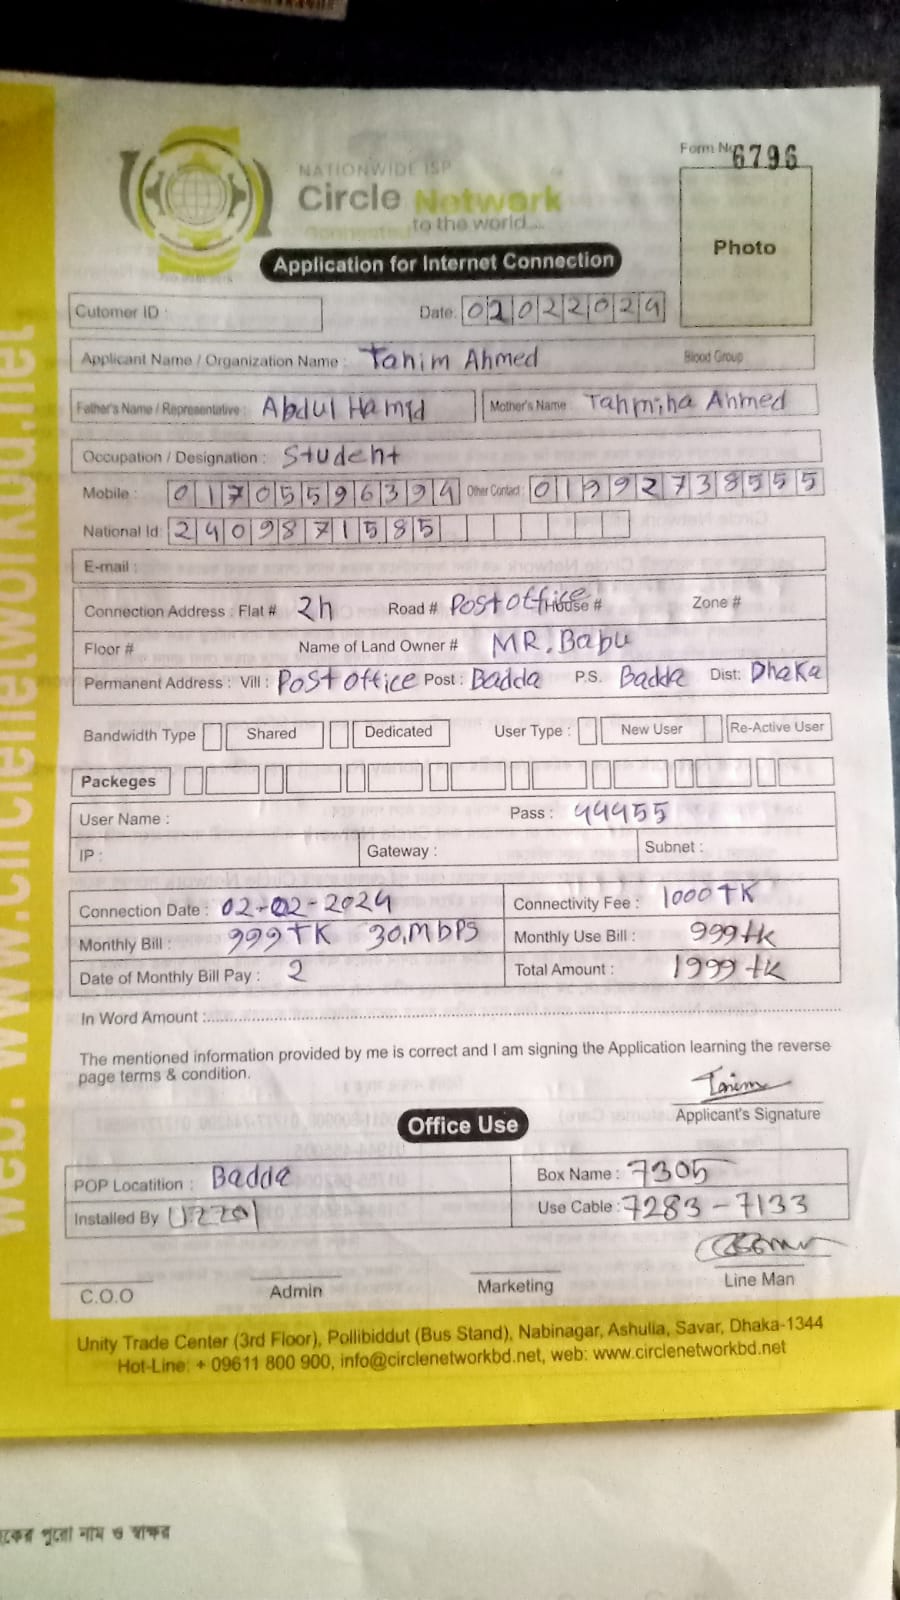 Form No 6796
NATIONWIDE ISP
Circle Network
Connected to the world....
Photo
Application for Internet Connection
Cutomer ID : Date: 02022024
Applicant Name / Organization Name : Tanim Ahmed Blood Group
Father's Name / Representative : Abdul Hamid Mother's Name Tahmina Ahmed
Occupation / Designation : Student
Mobile : 01705596394 Other Contact : 01992738555
National Id: 2409871585
E-mail :
Connection Address : Flat # 2h Road # Post office House # Zone #
Floor # Name of Land Owner # MR. Babu
Permanent Address : Vill : Post office Post : Badda P.S. Badda Dist: Dhaka
Bandwidth Type Shared Dedicated User Type : New User Re-Active User
Packeges
User Name : Pass : 44455
IP : Gateway : Subnet :
Connection Date : 02-02-2024 Connectivity Fee : 1000 TK
Monthly Bill : 999 TK 30.Mbps Monthly Use Bill : 999 tk
Date of Monthly Bill Pay : 2 Total Amount : 1999 tk
In Word Amount :
The mentioned information provided by me is correct and I am signing the Application learning the reverse
page terms & condition.
Tanim
Applicant's Signature
Office Use
POP Locatition : Badda Box Name : 7305
Installed By Uzzol Use Cable : 7283 - 7133
C.O.O Admin Marketing Line Man
Unity Trade Center (3rd Floor), Pollibiddut (Bus Stand), Nabinagar, Ashulia, Savar, Dhaka-1344
Hot-Line: + 09611 800 900, info@circlenetworkbd.net, web: www.circlenetworkbd.net
web: www.circlenetworkbd.net
পুরো নাম ও স্বাক্ষর